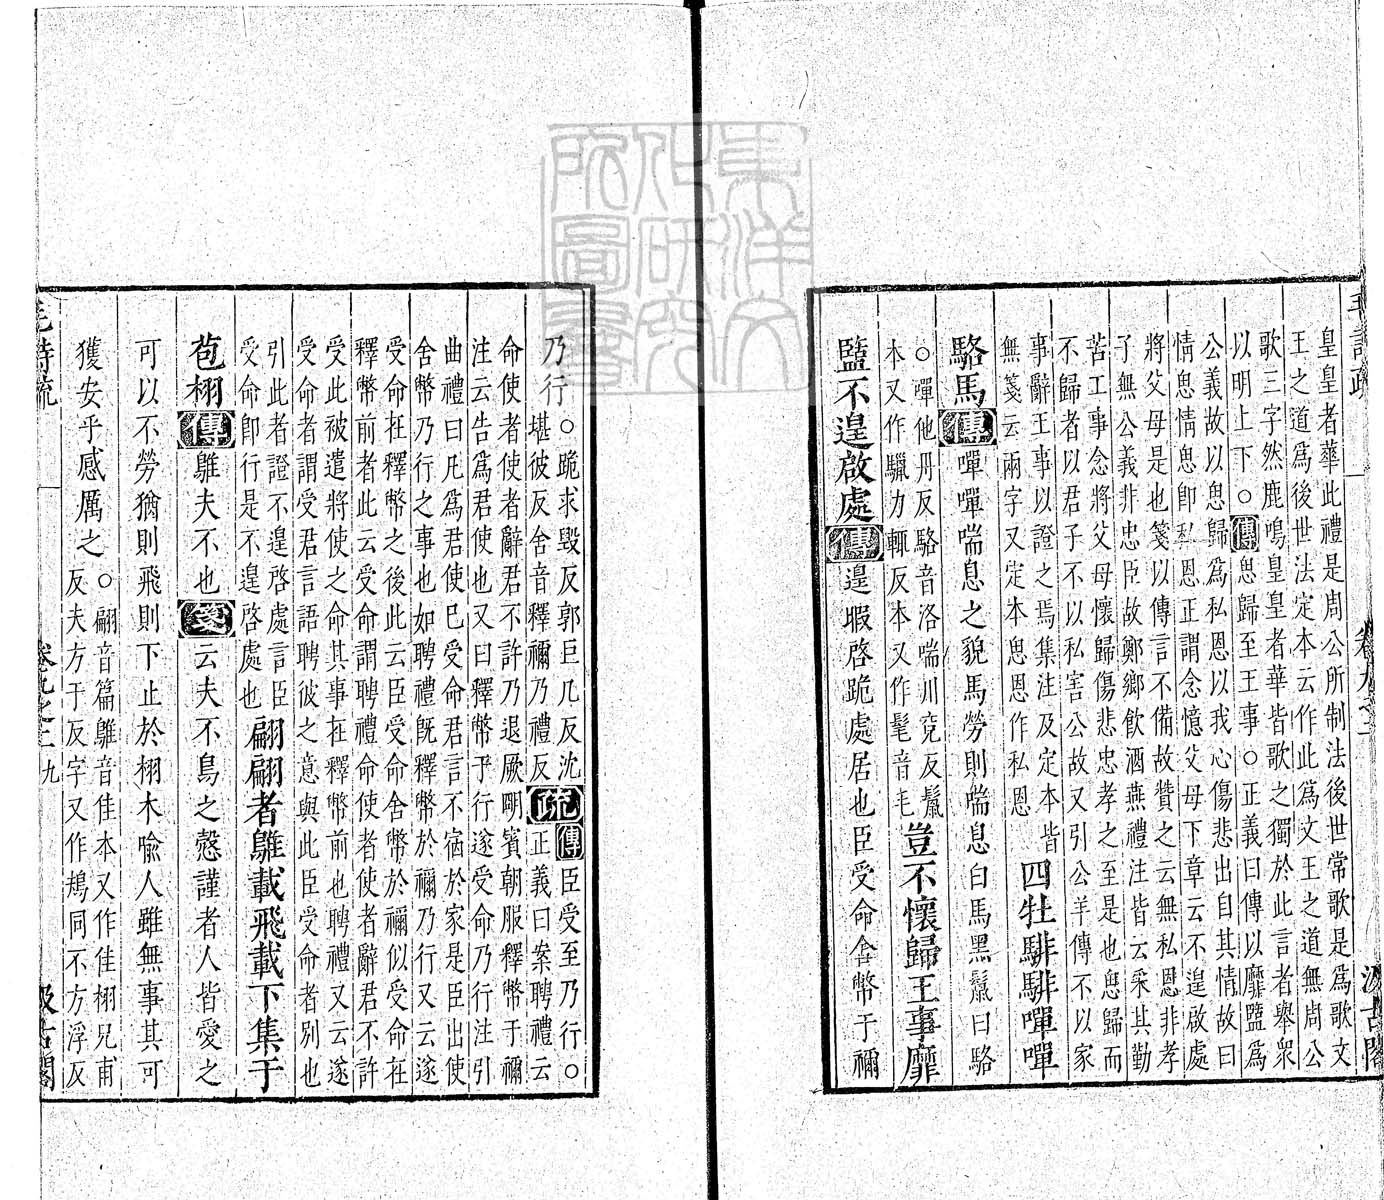 毛詩疏
卷九之二
汲古閣
皇皇者華此禮是周公所制法後世常歌是爲歌文
王之道爲後世法定本云作此爲文王之道無周公
歌三字然鹿鳴皇皇者華皆歌之獨於此言者舉衆
以明上下○傳思歸至王事○正義曰傳以靡盬爲
公義故以思歸爲私恩以我心傷悲出自其情故曰
情思情思卽私恩正謂念憶父母下章云不遑啟處
將父母是也箋以傳言不備故贊之云無私恩非孝
子無公義非忠臣故鄭鄉飲酒燕禮注皆云采其勤
苦工事念將父母懷歸傷悲忠孝之至是也思歸而
不歸者以君子不以私害公故又引公羊傳不以家
事辭王事以證之焉集注及定本皆
無箋云兩字又定本思恩作私恩
四牡騑騑嘽嘽
駱馬傳嘽嘽喘息之貌馬勞則喘息白馬黑鬣曰駱
○嘽他丹反駱音洛喘川兗反鬣
本又作驖力輒反本又作髦音毛
豈不懷歸王事靡
盬不遑啟處傳遑暇啓跪處居也臣受命舍幣于禰
乃行○跪求毀反郭巨几反沈
堪彼反舍音釋禰乃禮反
疏傳臣受至乃行○
正義曰案聘禮云
命使者使者辭君不許乃退厥明賓朝服釋幣于禰
注云告爲君使也又曰釋幣于行遂受命乃行注引
曲禮曰凡爲君使已受命君言不宿於家是臣出使
舍幣乃行之事也如聘禮旣釋幣於禰乃行又云遂
受命在釋幣之後此云臣受命舍幣於禰似受命在
釋幣前者此云受命謂聘禮命使者使者辭君不許
受此被遣將使之命其事在釋幣前也聘禮又云遂
受命者謂受君言語聘彼之意與此臣受命者別也
引此者證不遑啓處言臣
受命卽行是不遑啓處也
翩翩者鵻載飛載下集于
苞栩傳鵻夫不也箋云夫不鳥之慤謹者人皆愛之
可以不勞猶則飛則下止於栩木喩人雖無事其可
獲安乎感厲之○翩音篇鵻音隹本又作隹栩況甫
反夫方于反字又作鳺同不方浮反
毛詩疏
卷九之二
九
汲古閣
東洋文
化研究
所圖書